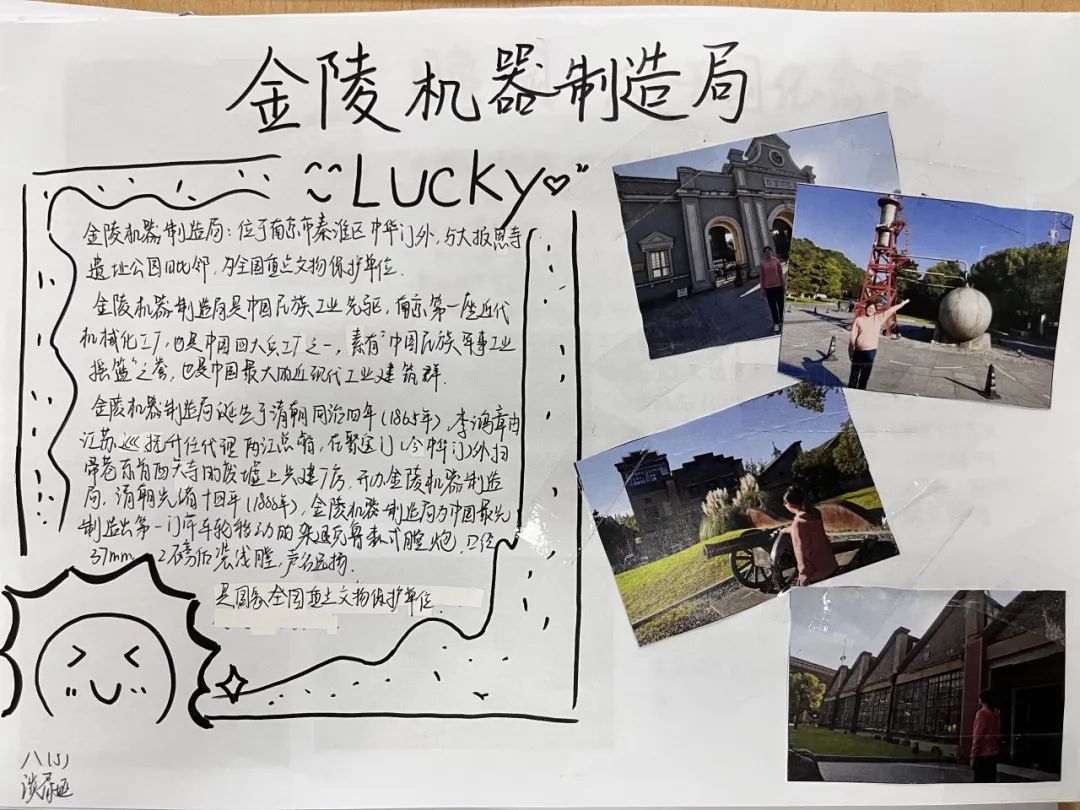 金陵机器制造局
Lucky
金陵机器制造局：位于南京市秦淮区中华门外，与大报恩寺
遗址公园毗邻，为全国重点文物保护单位.
金陵机器制造局是中国民族工业先驱，南京第一座近代
机械化工厂，也是中国四大兵工厂之一，素有"中国民族军事工业
摇篮"之誉，也是中国最大的近现代工业建筑群.
金陵机器制造局诞生于清朝同治四年(1865年)，李鸿章由
江苏巡抚升任代理两江总督，在聚宝门(今中华门)外扫
帚巷东首西天寺的废墟上兴建厂房，开办金陵机器制造
局，清朝光绪十四年(1888年)，金陵机器制造局为中国最先
制造出第一门带车轮移动的架退克鲁森式膛炮，口径
37mm 2磅后装线膛，声名远扬.
是国家全国重点文物保护单位
八(5)